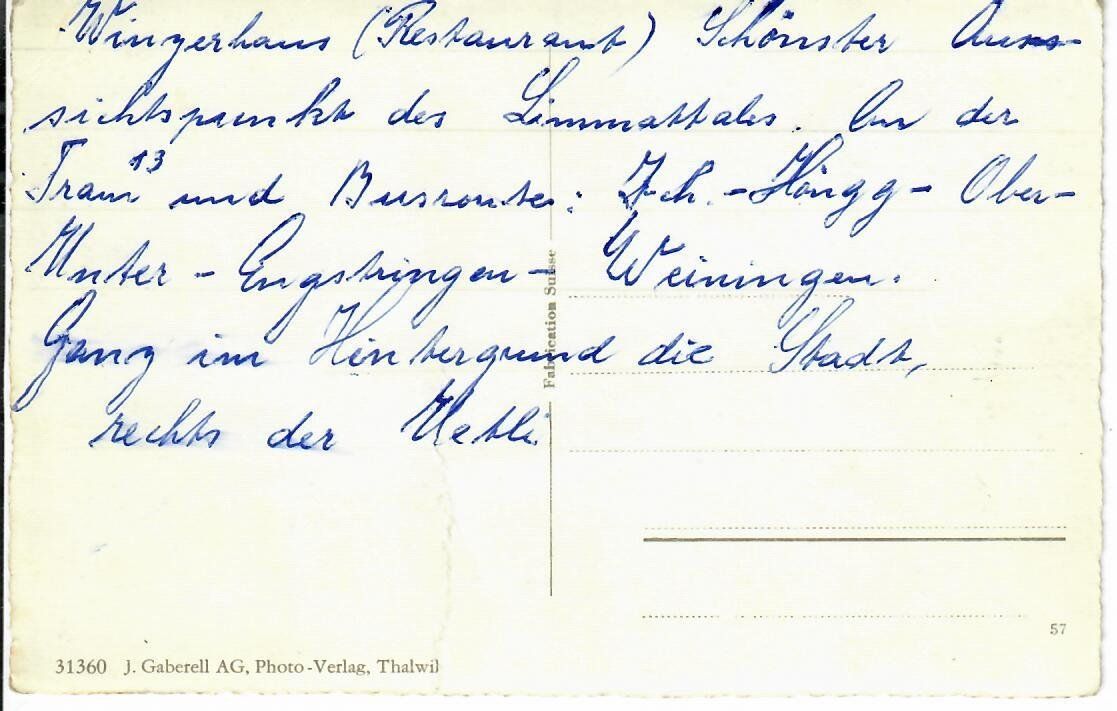 Winzerhaus (Restaurant) Schönster Aus-
sichtspunkt des Limmattales. An der
Tram 13 und Busroute: Zch.-Höngg- Ober-
Unter - Engstringen - Weiningen.
Ganz im Hintergrund die Stadt,
rechts der Uetli
Fabrication Suisse
57
31360 J. Gaberell AG, Photo-Verlag, Thalwil